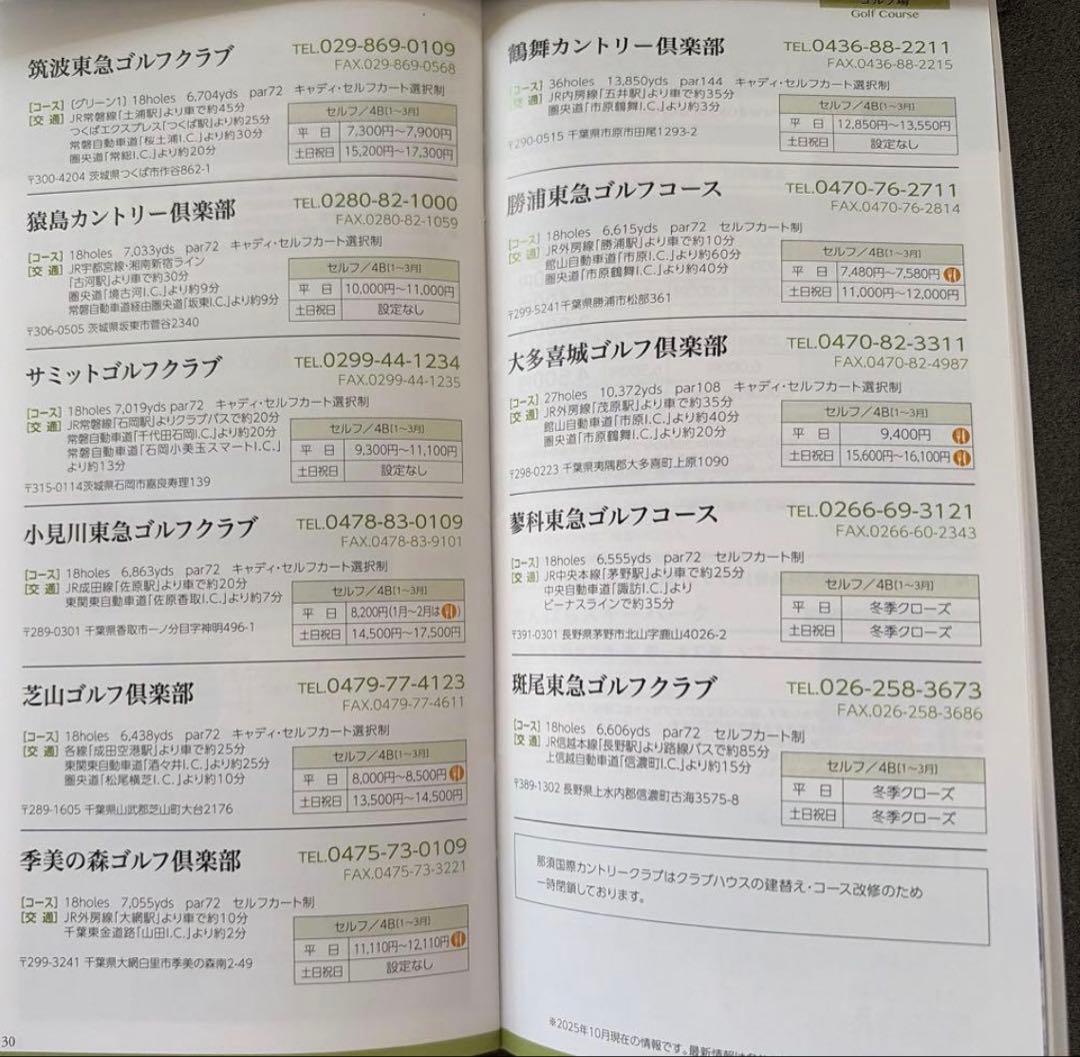 筑波東急ゴルフクラブ
TEL.029-869-0109
FAX.029-869-0568
[コース] [グリーン1] 18holes 6,704yds par72 キャディ・セルフカート選択制
[交通] JR常磐線「土浦駅」より車で約45分
つくばエクスプレス「つくば駅」より約25分
常磐自動車道「桜土浦I.C.」より約30分
圏央道「常総I.C.」より約20分
〒300-4204 茨城県つくば市作谷862-1
セルフ/4B[1〜3月]
平日 7,300円〜7,900円
土日祝日 15,200円〜17,300円
猿島カントリー倶楽部
TEL.0280-82-1000
FAX.0280-82-1059
[コース] 18holes 7,033yds par72 キャディ・セルフカート選択制
[交通] JR宇都宮線・湘南新宿ライン
「古河駅」より車で約30分
圏央道「境古河I.C.」より約9分
常磐自動車道経由圏央道「坂東I.C.」より約9分
〒306-0505 茨城県坂東市菅谷2340
セルフ/4B[1〜3月]
平日 10,000円〜11,000円
土日祝日 設定なし
サミットゴルフクラブ
TEL.0299-44-1234
FAX.0299-44-1235
[コース] 18holes 7,019yds par72 キャディ・セルフカート選択制
[交通] JR常磐線「石岡駅」よりクラブバスで約20分
常磐自動車道「千代田石岡I.C.」より約20分
常磐自動車道「石岡小美玉スマートI.C.」
より約13分
〒315-0114茨城県石岡市嘉良寿理139
セルフ/4B[1〜3月]
平日 9,300円〜11,100円
土日祝日 設定なし
小見川東急ゴルフクラブ
TEL.0478-83-0109
FAX.0478-83-9101
[コース] 18holes 6,863yds par72 キャディ・セルフカート選択制
[交通] JR成田線「佐原駅」より車で約20分
東関東自動車道「佐原香取I.C.」より約7分
〒289-0301 千葉県香取市一ノ分目字神明496-1
セルフ/4B[1〜3月]
平日 8,200円(1月〜2月は)
土日祝日 14,500円〜17,500円
芝山ゴルフ倶楽部
TEL.0479-77-4123
FAX.0479-77-4611
[コース] 18holes 6,438yds par72 キャディ・セルフカート選択制
[交通] 各線「成田空港駅」より車で約25分
東関東自動車道「酒々井I.C.」より約25分
圏央道「松尾横芝I.C.」より約10分
〒289-1605 千葉県山武郡芝山町大台2176
セルフ/4B[1〜3月]
平日 8,000円〜8,500円
土日祝日 13,500円〜14,500円
季美の森ゴルフ倶楽部
TEL.0475-73-0109
FAX.0475-73-3221
[コース] 18holes 7,055yds par72 セルフカート制
[交通] JR外房線「大網駅」より車で約10分
千葉東金道路「山田I.C.」より約2分
〒299-3241 千葉県大網白里市季美の森南2-49
セルフ/4B[1〜3月]
平日 11,110円〜12,110円
土日祝日 設定なし
30
ゴルフ場
Golf Course
鶴舞カントリー倶楽部
TEL.0436-88-2211
FAX.0436-88-2215
[コース] 36holes 13,850yds par144 キャディ・セルフカート選択制
[交通] JR内房線「五井駅」より車で約35分
圏央道「市原鶴舞I.C.」より約3分
〒290-0515 千葉県市原市田尾1293-2
セルフ/4B[1〜3月]
平日 12,850円〜13,550円
土日祝日 設定なし
勝浦東急ゴルフコース
TEL.0470-76-2711
FAX.0470-76-2814
[コース] 18holes 6,615yds par72 セルフカート制
[交通] JR外房線「勝浦駅」より車で約10分
館山自動車道「市原I.C.」より約60分
圏央道「市原鶴舞I.C.」より約40分
〒299-5241千葉県勝浦市松部361
セルフ/4B[1〜3月]
平日 7,480円〜7,580円
土日祝日 11,000円〜12,000円
大多喜城ゴルフ倶楽部
TEL.0470-82-3311
FAX.0470-82-4987
[コース] 27holes 10,372yds par108 キャディ・セルフカート選択制
[交通] JR外房線「茂原駅」より車で約35分
館山自動車道「市原I.C.」より約40分
圏央道「市原鶴舞I.C.」より約20分
〒298-0223 千葉県夷隅郡大多喜町上原1090
セルフ/4B[1〜3月]
平日 9,400円
土日祝日 15,600円〜16,100円
蓼科東急ゴルフコース
TEL.0266-69-3121
FAX.0266-60-2343
[コース] 18holes 6,555yds par72 セルフカート制
[交通] JR中央本線「茅野駅」より車で約25分
中央自動車道「諏訪I.C.」より
ビーナスラインで約35分
〒391-0301 長野県茅野市北山字鹿山4026-2
セルフ/4B[1〜3月]
平日 冬季クローズ
土日祝日 冬季クローズ
斑尾東急ゴルフクラブ
TEL.026-258-3673
FAX.026-258-3686
[コース] 18holes 6,606yds par72 セルフカート制
[交通] JR信越本線「長野駅」より路線バスで約85分
上信越自動車道「信濃町I.C.」より約15分
〒389-1302 長野県上水内郡信濃町古海3575-8
セルフ/4B[1〜3月]
平日 冬季クローズ
土日祝日 冬季クローズ
那須国際カントリークラブはクラブハウスの建替え・コース改修のため
一時閉鎖しております。
※2025年10月現在の情報です。最新情報は